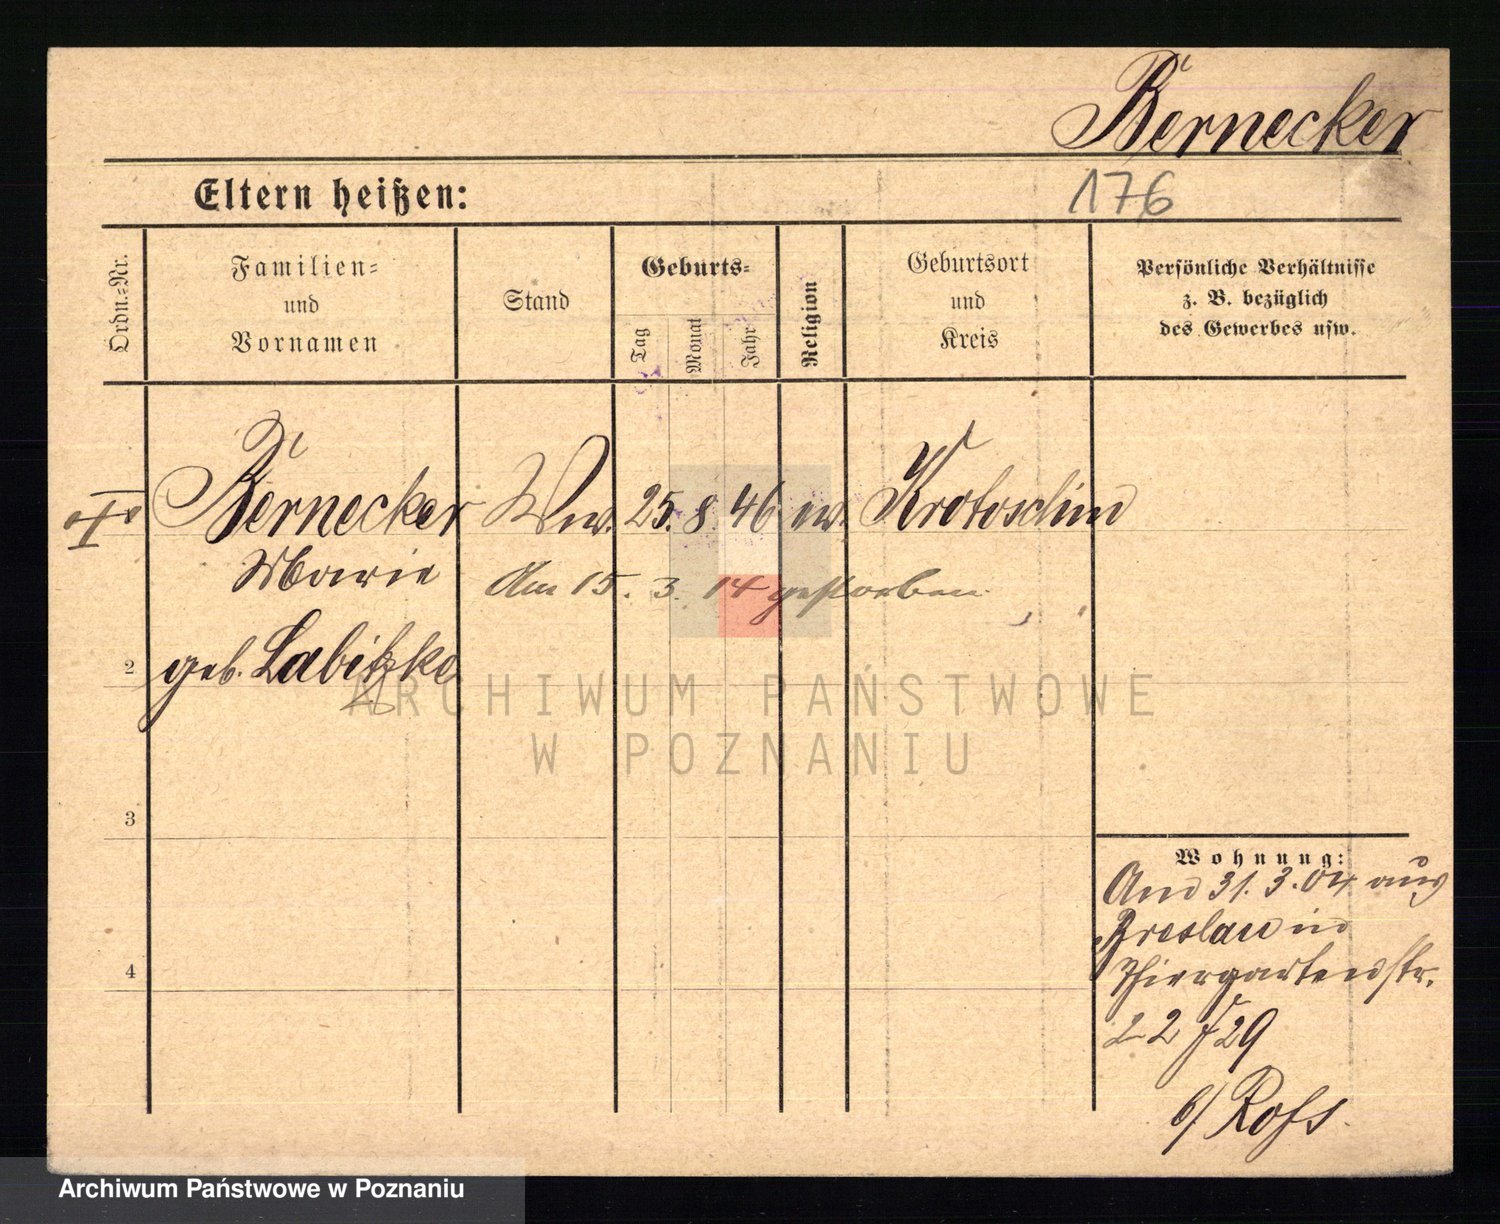 Bernecker
Eltern heißen:
176
Ordn.-Nr.
Familien-
und
Vornamen
Stand
Geburts-
Tag
Monat
Jahr
Religion
Geburtsort
und
Kreis
Persönliche Verhältnisse
z. B. bezüglich
des Gewerbes usw.
Bernecker Ww. 25. 8. 46 ev. Krotoschin
Marie
Am 15. 3. 14 gestorben
2 geb. Labitzke
ARCHIWUM PAŃSTWOWE
W POZNANIU
3
Wohnung:
Am 31. 3. 04 aus
Breslau in
4
Thiergartenstr.
22 F 29
b/ Roß.
Archiwum Państwowe w Poznaniu